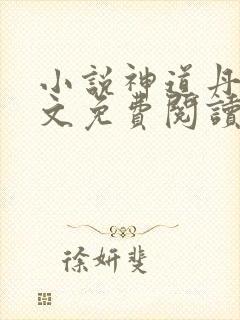 小說神道丹
文免費閱讀
徐妍斐